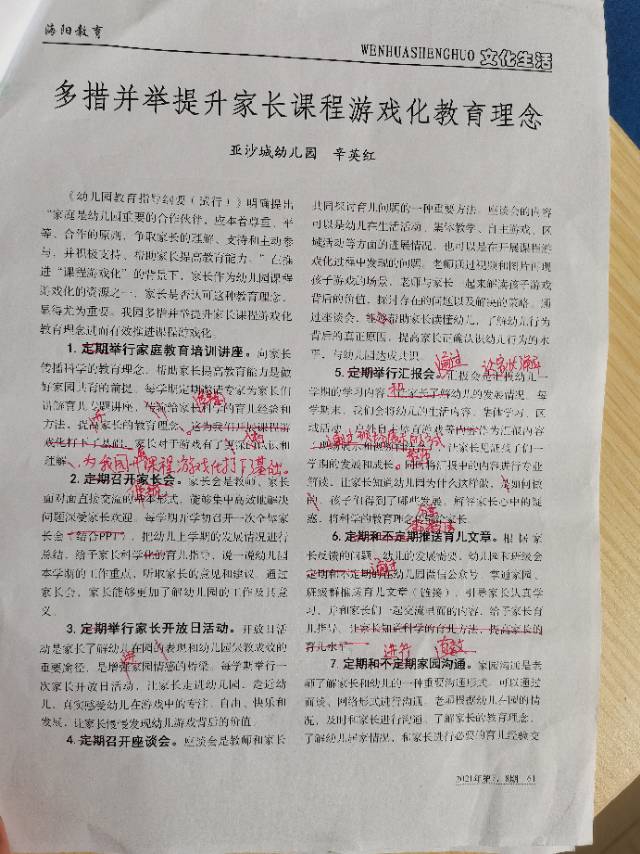 海阳教育
WENHUASHENGHUO 文化生活
多措并举提升家长课程游戏化教育理念
亚沙城幼儿园 辛英红
《幼儿园教育指导纲要（试行）》明确提出
“家庭是幼儿园重要的合作伙伴，应本着尊重、平
等、合作的原则，争取家长的理解、支持和主动参
与，并积极支持、帮助家长提高教育能力。”在推
进“课程游戏化”的背景下，家长作为幼儿园课程
游戏化的资源之一，家长是否认可这种教育理念，
显得尤为重要。我园多措并举提升家长课程游戏化
教育理念进而有效推进课程游戏化。
1. 定期举行家庭教育培训讲座。向家长
传播科学的教育理念，帮助家长提高教育能力是做
好家园共育的前提。每学期定期邀请专家为家长们
讲解育儿专题讲座，传递给家长科学的育儿经验和
方法，提高家长的教育理念，这为我们开展课程游
戏化打下了基础。家长对于游戏有了更深的认识和
理解
为我园开课程游戏化打下基础。
2. 定期召开家长会。家长会是教师、家长
面对面直接交流的基本形式，能够集中高效地解决
问题深受家长欢迎。每学期开学初召开一次全体家
长会（结合PPT），把幼儿上学期的发展情况进行
总结，给予家长科学化的育儿指导，说一说幼儿园
本学期的工作重点，听取家长的意见和建议。通过
家长会，家长能够更加了解幼儿园的工作及其意
义。
3. 定期举行家长开放日活动。开放日活
动是家长了解幼儿在园的表现和幼儿园保教成效的
重要途径，是增进家园情感的桥梁。每学期举行一
次家长开放日活动，让家长走进幼儿园，走近幼
儿，真实感受幼儿在游戏中的专注、自由、快乐和
发展，让家长慢慢发现幼儿游戏背后的价值。
4. 定期召开座谈会。座谈会是教师和家长
共同探讨育儿问题的一种重要方法，座谈会的内容
可以是幼儿在生活活动、集体教学、自主游戏、区
域活动等方面的进展情况，也可以是在开展课程游
戏化过程中发现的问题。老师通过视频和图片再现
孩子游戏的场景，老师与家长一起来解读孩子游戏
背后的价值，探讨存在的问题以及解决的策略。通
过座谈会，能够帮助家长读懂幼儿，了解幼儿行为
背后的真正原因，提高家长正确认识幼儿行为的水
平，与幼儿园达成共识。
通过
5. 定期举行汇报会。汇报会是汇报幼儿一
学期的学习内容，把家长了解幼儿的发展情况。每
学期末，我们会将幼儿的生活内容、集体学习、区
域活动、户外自主体育游戏等内容作为汇报内容
通过现场展示的形式
让家长见证孩子们一
学期的发展和成长。同时将汇报中的内容进行专业
解读，让家长知道幼儿为什么这样做，如何做
的，孩子们得到了哪些发展，解答家长心中的疑
惑，将科学的教育理念传递给家长。
6. 定期和不定期推送育儿文章。根据家
长反馈的问题、幼儿的发展需要，幼儿园和班级会
定期和不定期的在幼儿园微信公众号、掌通家园、
班级群推送育儿文章（链接），引导家长认真学
习，并和家长们一起交流里面的内容，给予家长育
儿指导，让家长知道科学的育儿方法，提高家长的
育儿水平。
进行
7. 定期和不定期家园沟通。家园沟通是老
师了解家长和幼儿的一种重要沟通形式，可以通过
面谈、网络形式进行沟通。老师根据幼儿在园的情
况，及时和家长进行沟通，了解家长的教育理念，
了解幼儿居家情况，和家长进行必要的育儿经验交